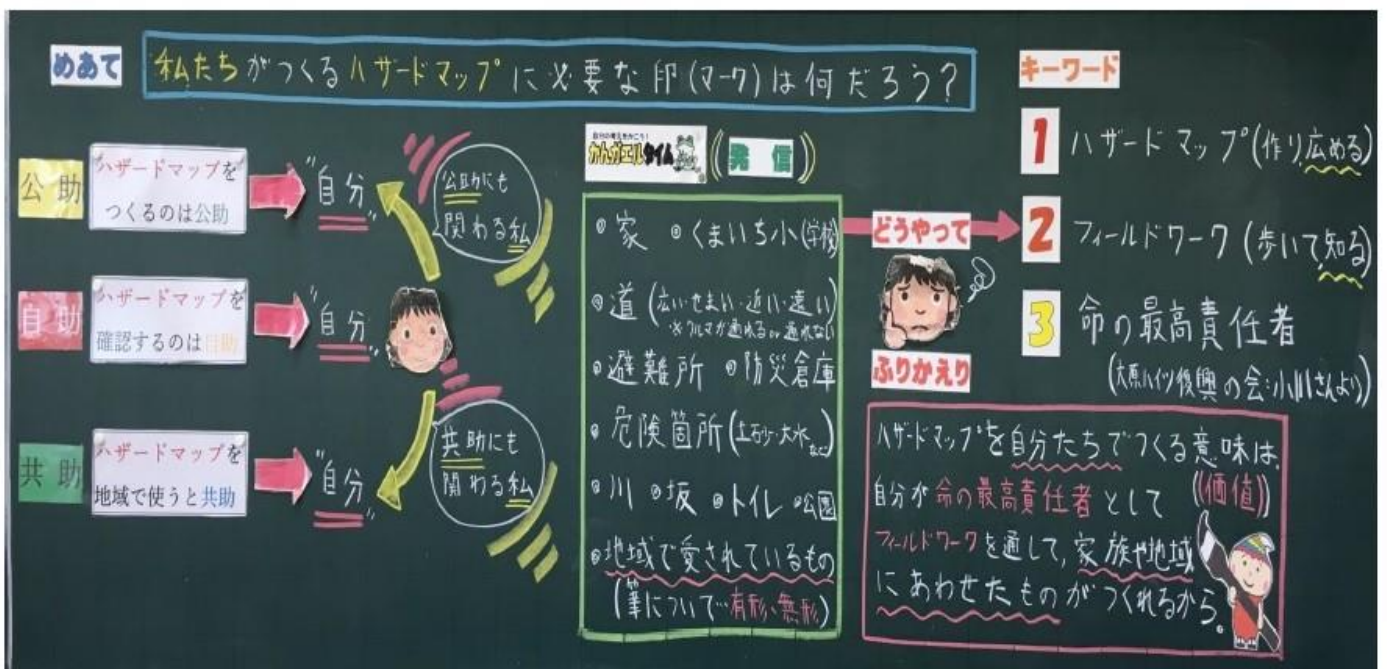 めあて
私たちがつくるハザードマップに必要な印(マーク)は何だろう?
公助
ハザードマップを
つくるのは公助
"自分"
公助にも
関わる私
自助
ハザードマップを
確認するのは自助
"自分"
共助
ハザードマップを
地域で使うと共助
"自分"
共助にも
関わる私
自分の考えをかこう!
かんガエルタイム
発信
家 くまいち小(学校)
道(広い・せまい・近い・遠い)
※クルマが通れるor通れない
避難所 防災倉庫
危険箇所(土砂・大水など)
川 坂 トイレ 公園
地域で愛されているもの
(筆について…有形、無形)
どうやって
ふりかえり
キーワード
1 ハザードマップ(作り広める)
2 フィールドワーク(歩いて知る)
3 命の最高責任者
(大原ハイツ復興の会:小川さんより)
ハザードマップを自分たちでつくる意味は、
自分が命の最高責任者として ((価値))
フィールドワークを通して、家族や地域
にあわせたものがつくれるから。